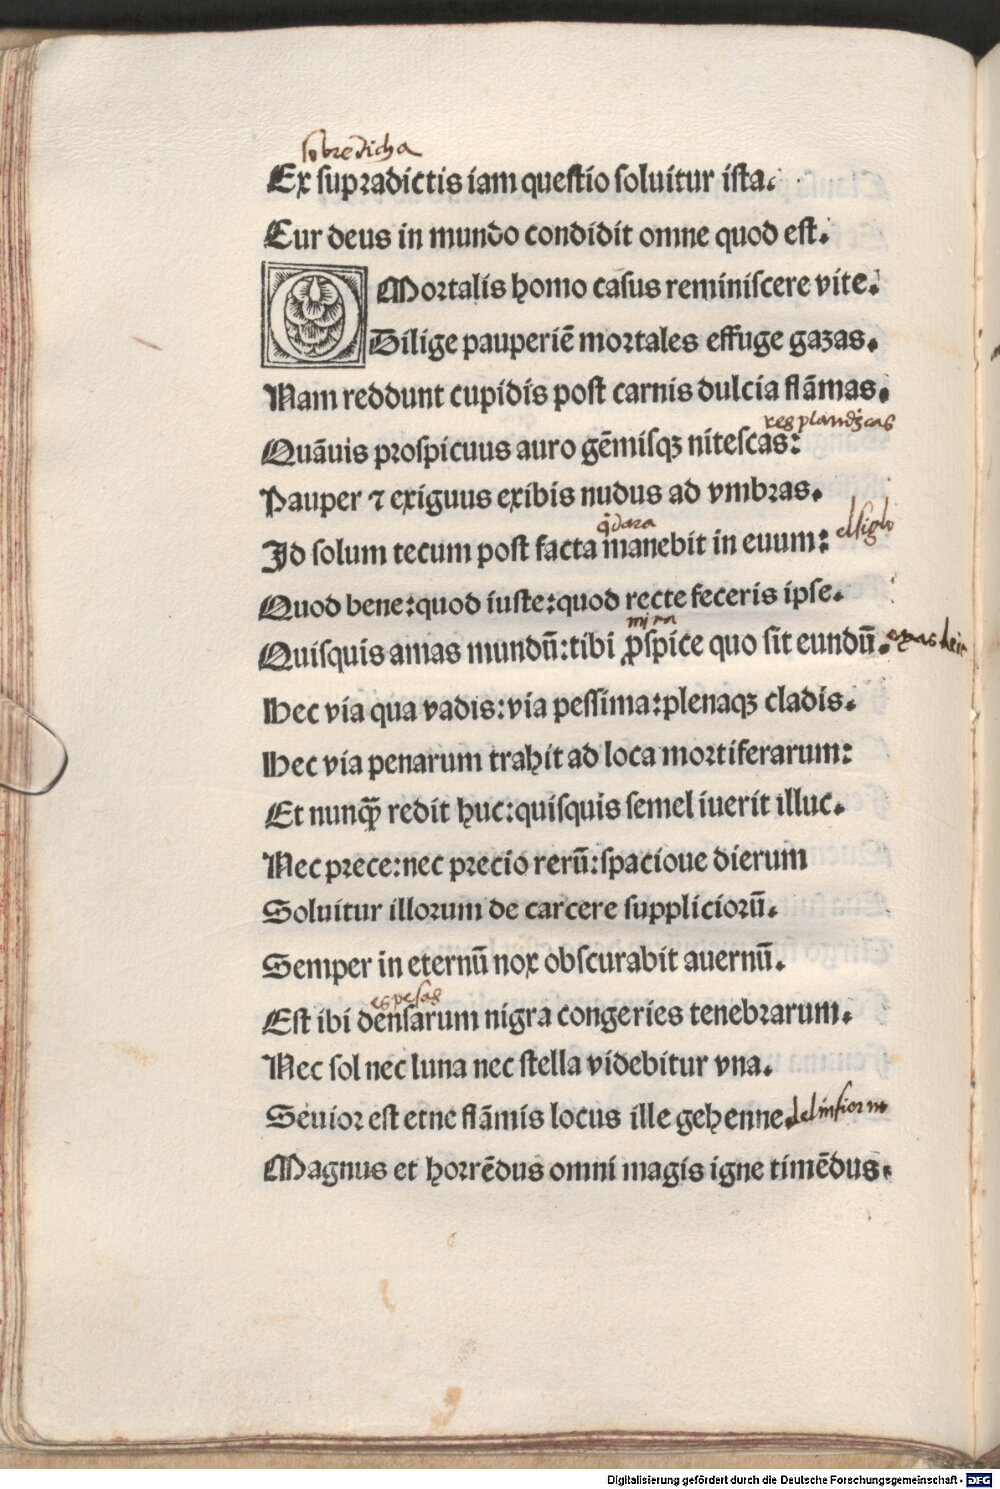 sobredicha
Ex supradictis iam questio soluitur ista.
Cur deus in mundo condidit omne quod est.
O Mortalis homo casus reminiscere vite.
Dilige pauperiē mortales effuge gazas.
Nam reddunt cupidis post carnis dulcia flāmas.
resplandẓcas
Quāuis prospicuus auro gēmisqꝫ nitescas:
Pauper ⁊ exiguus exibis nudus ad vmbras.
q̄dara
Id solum tecum post facta manebit in euum: el siglo
Quod bene:quod iuste:quod recte feceris ipse.
mira
Quisquis amas mundū:tibi ꝓspice quo sit eundū.
Hec via qua vadis:via pessima:plenaqꝫ cladis.
Hec via penarum trahit ad loca mortiferarum:
Et nunqꝫ̄ redit huc:quisquis semel iuerit illuc.
Nec prece:nec precio rerū:spacioue dierum
Soluitur illorum de carcere suppliciorū.
Semper in eternū nox obscurabit auernū.
espesas
Est ibi densarum nigra congeries tenebrarum.
Nec sol nec luna nec stella videbitur vna.
Seuior est etne flāmis locus ille gehenne. del infierno
Magnus et horrēdus omni magis igne timēdus.
Digitalisierung gefördert durch die Deutsche Forschungsgemeinschaft - DFG